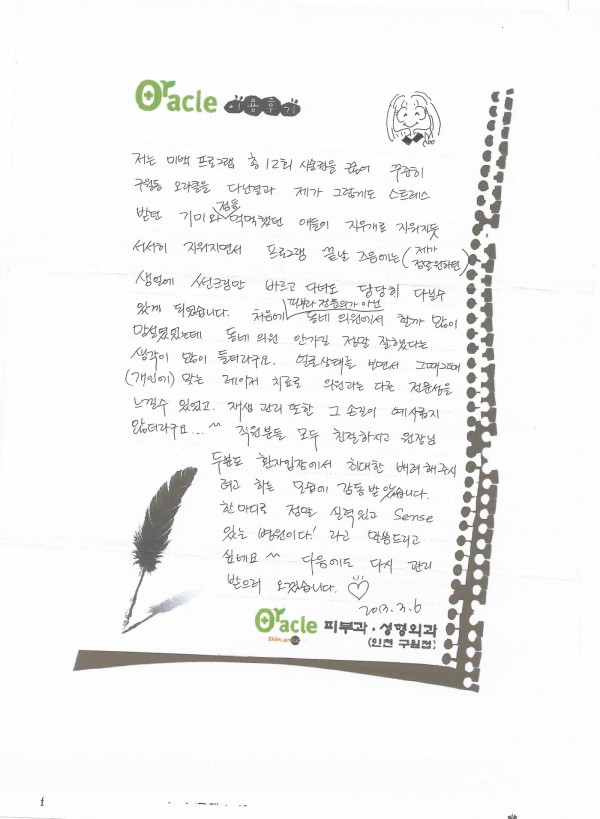 Oracle 이용후기
저는 미백 프로그램 총 12회 시술권을 끊어 꾸준히
구월동 오라클을 다닌결과 제가 그렇게도 스트레스
받던 기미와 점들 했던 얘들이 지우개로 지워지듯
서서히 지워지면서 프로그램 끝날 즈음에는 (제가 정말 원하던)
생얼에 썬크림만 바르고 다녀도 당당히 다닐수
있게 되었습니다. 처음에 피부과 전문의가 아닌 동네 의원에서 할까 많이
망설였었는데 동네 의원 안가길 정말 잘했다는
생각이 많이 들더라구요. 얼굴상태를 보면서 그때그때
(개인에) 맞는 레이저 치료로 의원과는 다른 전문성을
느낄수 있었고. 재생 관리 또한 그 손길이 예사롭지
않더라구요...^^ 직원분들 모두 친절하시고 원장님
두분도 환자입장에서 최대한 배려해주시
려고 하는 모습에 감동받았습니다.
한마디로 정말 실력있고 Sense
있는 병원이다! 라고 말씀드리고
싶네요^^ 다음에도 다시 관리
받으러 오겠습니다. ♡
2013.3.6
Oracle 피부과·성형외과
(인천 구월점)